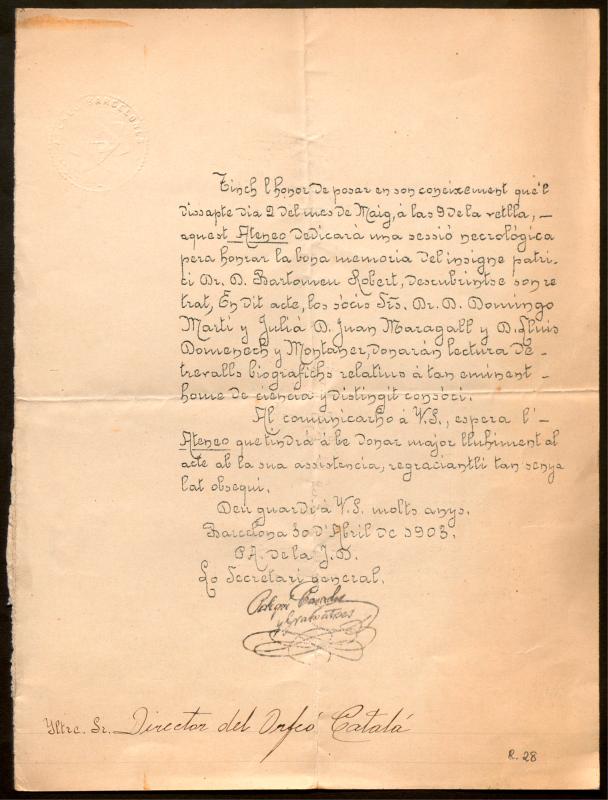 BARCELONÈS
Tinch l'honor de posar en son coneixement que'l
dissapte dia 2 del mes de Maig, á las 9 de la vetlla, —
aquest Ateneo dedicará una sessió necrológica
pera honrar la bona memoria del insigne patri-
ci Dr. D. Bartomeu Robert, descubrintse son re
trat, En dit acte, los sócis Srs. Dr. D. Domingo
Martí y Juliá D. Juan Maragall y D. Lluis
Domenech y Montaner, donarán lectura de —
trevalls biografichs relatius á tan eminent —
home de ciencia y distingit consóci.
Al comunicarho á V.S., espera l'—
Ateneo que tindrá á be donar major lluhiment al
acte ab la sua assistencia, regraciantli tan senya
lat obsequi.
Deu guardi á V.S. molts anys.
Barcelona 30 d'Abril de 1903.
P.A. de la J.D.
Lo Secretari general.
Yltre. Sr. Director del Orfeó Catalá
R. 28